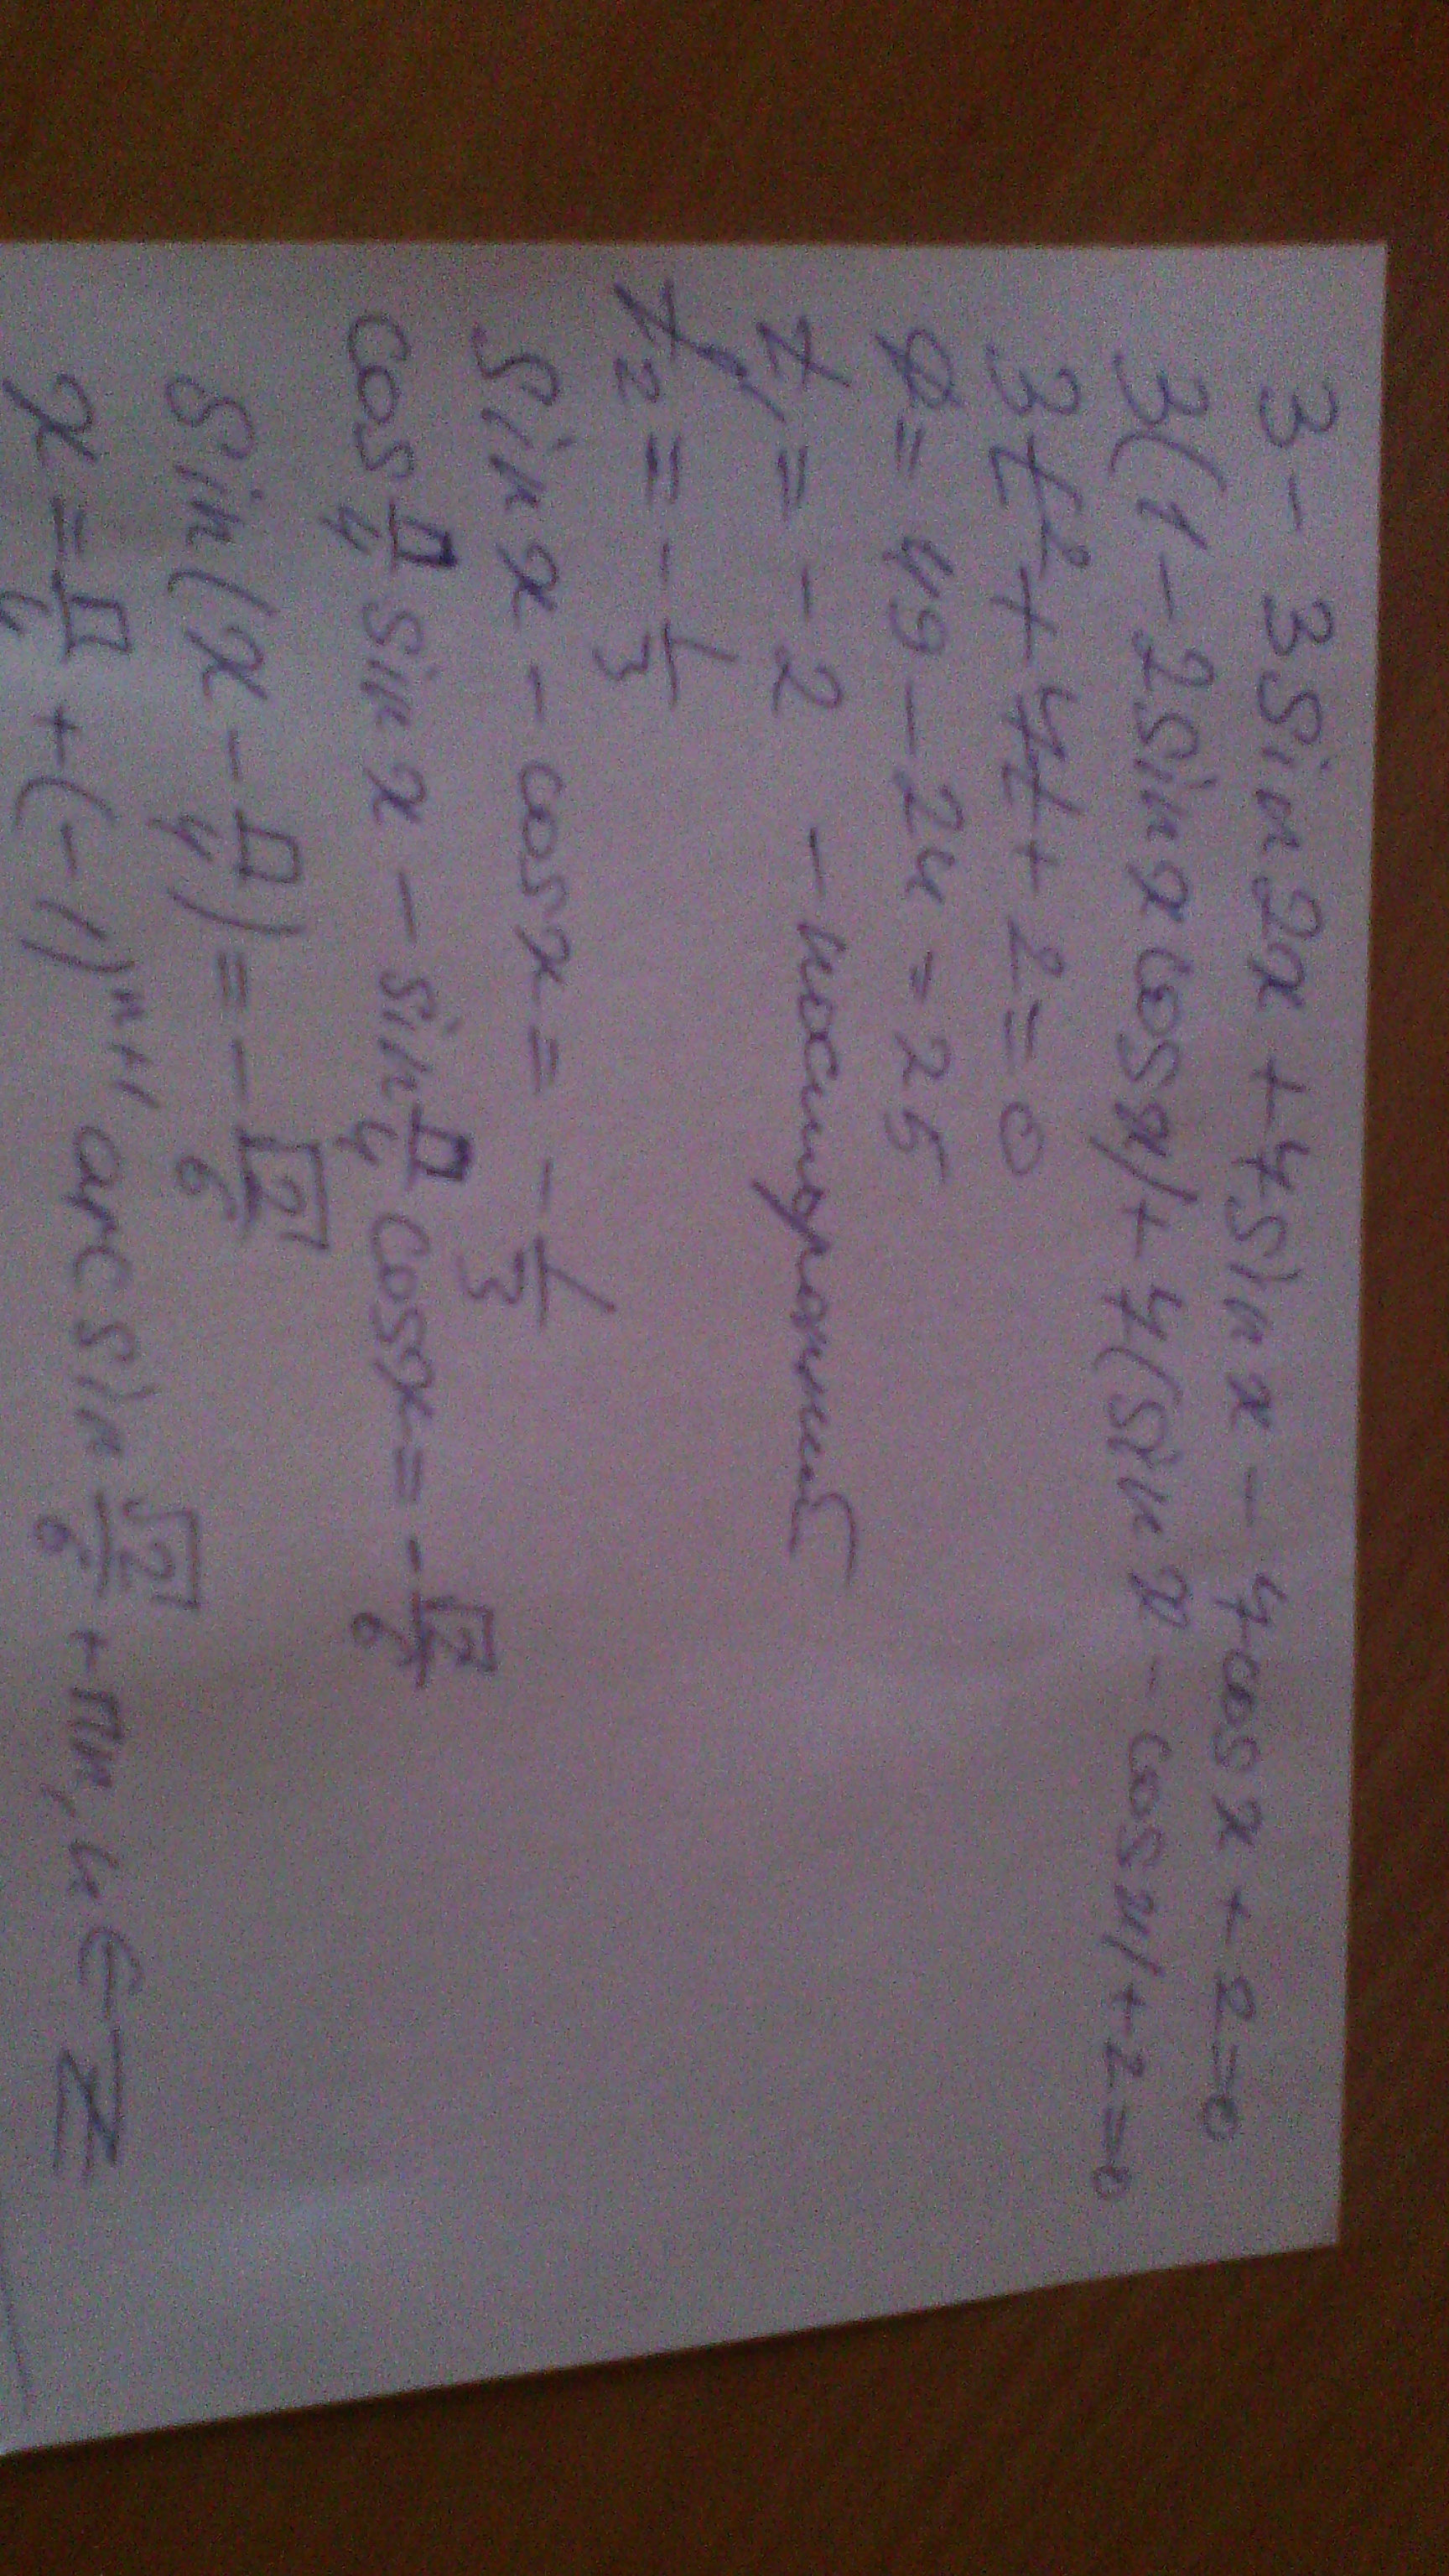 3 - 3Sin2x + 7Sinx - 7cosx + 2 = 0
3(1 - 2Sinxcosx) + 7(Sinx - cosx) + 2 = 0
3t² + 7t + 2 = 0
D = 49 - 24 = 25
t₁ = -2 - посторонний
t₂ = -1/3
Sinx - cosx = -1/3
cos П/4 Sinx - Sin П/4 cosx = -√2/6
Sin(x - П/4) = -√2/6
x = П/4 + (-1)ⁿ⁺¹ arcSin √2/6 + Пn, n ∈ Z